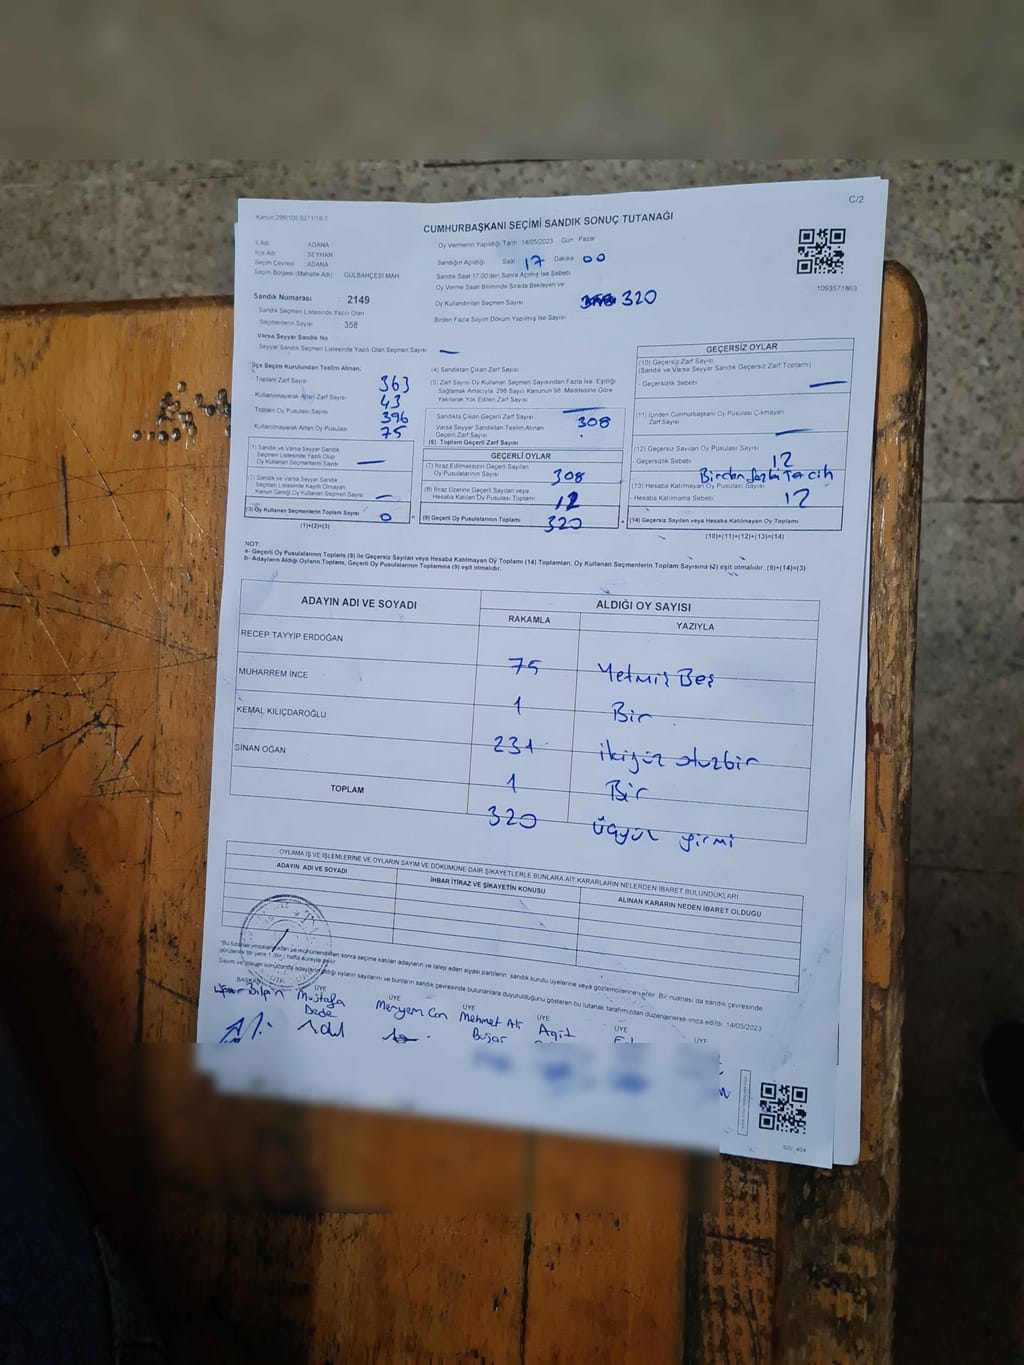 C/2
Kanun:298/105,6271/18-1
CUMHURBAŞKANI SEÇİMİ SANDIK SONUÇ TUTANAĞI
İl Adı : ADANA
İlçe Adı : SEYHAN
Seçim Çevresi : ADANA
Seçim Bölgesi (Mahalle Adı) : GÜLBAHÇESİ MAH
Sandık Numarası : 2149
Sandık Seçmen Listesinde Yazılı Olan
Seçmenlerin Sayısı : 358
Varsa Seyyar Sandık No
Seyyar Sandık Seçmen Listesinde Yazılı Olan Seçmen Sayısı —
Oy Vermenin Yapıldığı Tarih 14/05/2023 Gün Pazar
Sandığın Açıldığı Saat 17 Dakika 00
Sandık Saat 17:00'den Sonra Açılmış İse Sebebi
Oy Verme Saati Bitiminde Sırada Bekleyen ve
Oy Kullandırılan Seçmen Sayısı 320
Birden Fazla Sayım Döküm Yapılmış İse Sayısı
1093571863
İlçe Seçim Kurulundan Teslim Alınan;
Toplam Zarf Sayısı 363
Kullanılmayarak Artan Zarf Sayısı 43
Toplam Oy Pusulası Sayısı 396
Kullanılmayarak Artan Oy Pusulası 75
(1) Sandık ve Varsa Seyyar Sandık
Seçmen Listesinde Yazılı Olup
Oy Kullanan Seçmenlerin Sayısı —
(2) Sandık ve Varsa Seyyar Sandık
Seçmen Listesinde Kayıtlı Olmayan
Kanun Gereği Oy Kullanan Seçmen Sayısı —
(3) Oy Kullanan Seçmenlerin Toplam Sayısı 0
(1)+(2)=(3)
(4) Sandıktan Çıkan Zarf Sayısı
(5) Zarf Sayısı Oy Kullanan Seçmen Sayısından Fazla İse, Eşitliği
Sağlamak Amacıyla, 298 Sayılı Kanunun 98. Maddesine Göre
Yakılarak Yok Edilen Zarf Sayısı —
Sandıkta Çıkan Geçerli Zarf Sayısı 308
Varsa Seyyar Sandıktan Teslim Alınan
Geçerli Zarf Sayısı
(6) Toplam Geçerli Zarf Sayısı
GEÇERLİ OYLAR
(7) İtiraz Edilmeksizin Geçerli Sayılan
Oy Pusulalarının Sayısı 308
(8) İtiraz Üzerine Geçerli Sayılan veya
Hesaba Katılan Oy Pusulası Toplamı 12
(9) Geçerli Oy Pusulalarının Toplamı 320
GEÇERSİZ OYLAR
(10) Geçersiz Zarf Sayısı
(Sandık ve Varsa Seyyar Sandık Geçersiz Zarf Toplamı)
Geçersizlik Sebebi —
(11) İçinden Cumhurbaşkanı Oy Pusulası Çıkmayan
Zarf Sayısı —
(12) Geçersiz Sayılan Oy Pusulası Sayısı 12
Geçersizlik Sebebi Birden fazla Tercih
(13) Hesaba Katılmayan Oy Pusulası Sayısı
Hesaba Katılmama Sebebi 12
(14) Geçersiz Sayılan veya Hesaba Katılmayan Oy Toplamı
(10)+(11)+(12)+(13)=(14)
NOT:
a- Geçerli Oy Pusulalarının Toplamı (9) ile Geçersiz Sayılan veya Hesaba Katılmayan Oy Pusulası Toplamı (14) Toplamları, Oy Kullanan Seçmenlerin Toplam Sayısına (3) eşit olmalıdır. (9)+(14)=(3)
b- Adayların Aldığı Oyların Toplamı, Geçerli Oy Pusulalarının Toplamına (9) eşit olmalıdır.
ADAYIN ADI VE SOYADI ALDIĞI OY SAYISI
RAKAMLA YAZIYLA
RECEP TAYYİP ERDOĞAN 75 Yetmiş Beş
MUHARREM İNCE 1 Bir
KEMAL KILIÇDAROĞLU 231 ikiyüz otuzbir
SİNAN OĞAN 1 Bir
TOPLAM 320 Üçyüz yirmi
OYLAMA İŞ VE İŞLEMLERİNE VE OYLARIN SAYIM VE DÖKÜMÜNE DAİR ŞİKAYETLERLE BUNLARA AİT KARARLARIN NELERDEN İBARET BULUNDUKLARI
ADAYIN ADI VE SOYADI İHBAR İTİRAZ VE ŞİKAYETİN KONUSU ALINAN KARARIN NEDEN İBARET OLDUĞU
sonra seçime katılan adayların ve talep eden siyasi partilerin sandık kurulu üyelerine veya gözlemcilerine verilir. Bir nüshası da sandık çevresinde
görülecek bir yere 1 (bir) hafta süreyle asılır.
Sayım ve döküm sonucunda adayların aldığı oyların sayılarını ve bunların sandık çevresinde bulunanlara duyurulduğunu gösteren bu tutanak tarafımızdan düzenlenerek imza edildi. 14/05/2023
BAŞKAN ÜYE ÜYE ÜYE ÜYE ÜYE ÜYE
Bilgin Mustafa Dede Meryem Can Mehmet Ali Buşar Agit